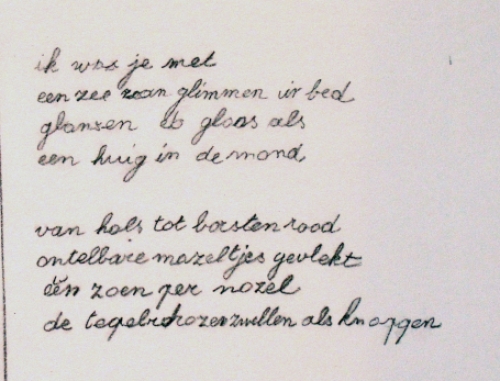 ik was je met
een zee van glimmen in bed
glanzen glas als
een huig in de mond
van hals tot borsten rood
ontelbare mazeltjes gevlekt
één zoen per mazel
de tepelrozen zwellen als knoppen